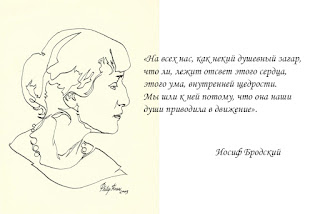 «На всех нас, как некий душевный загар,
что ли, лежит отсвет этого сердца,
этого ума, внутренней щедрости.
Мы шли к ней потому, что она наши
души приводила в движение».
Иосиф Бродский